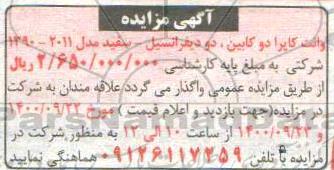 آگهی مزایده
وانت کاپرا دو کابین ، دو دیفرانسیل - سفید مدل ۲۰۱۱ - ۱۳۹۰
شرکتی به مبلغ پایه کارشناسی ۲/۶۵۰/۰۰۰/۰۰۰ ریال
از طریق مزایده عمومی واگذار می گردد علاقه مندان به شرکت
در مزایده(جهت بازدید و اعلام قیمت ) مورخ ۱۴۰۰/۰۹/۲۲
و ۱۴۰۰/۰۹/۲۳ از ساعت ۱۰ الی ۱۲ به منظور شرکت در
مزایده با تلفن ۰۹۱۲۶۱۱۷۲۵۹ هماهنگی نمایید